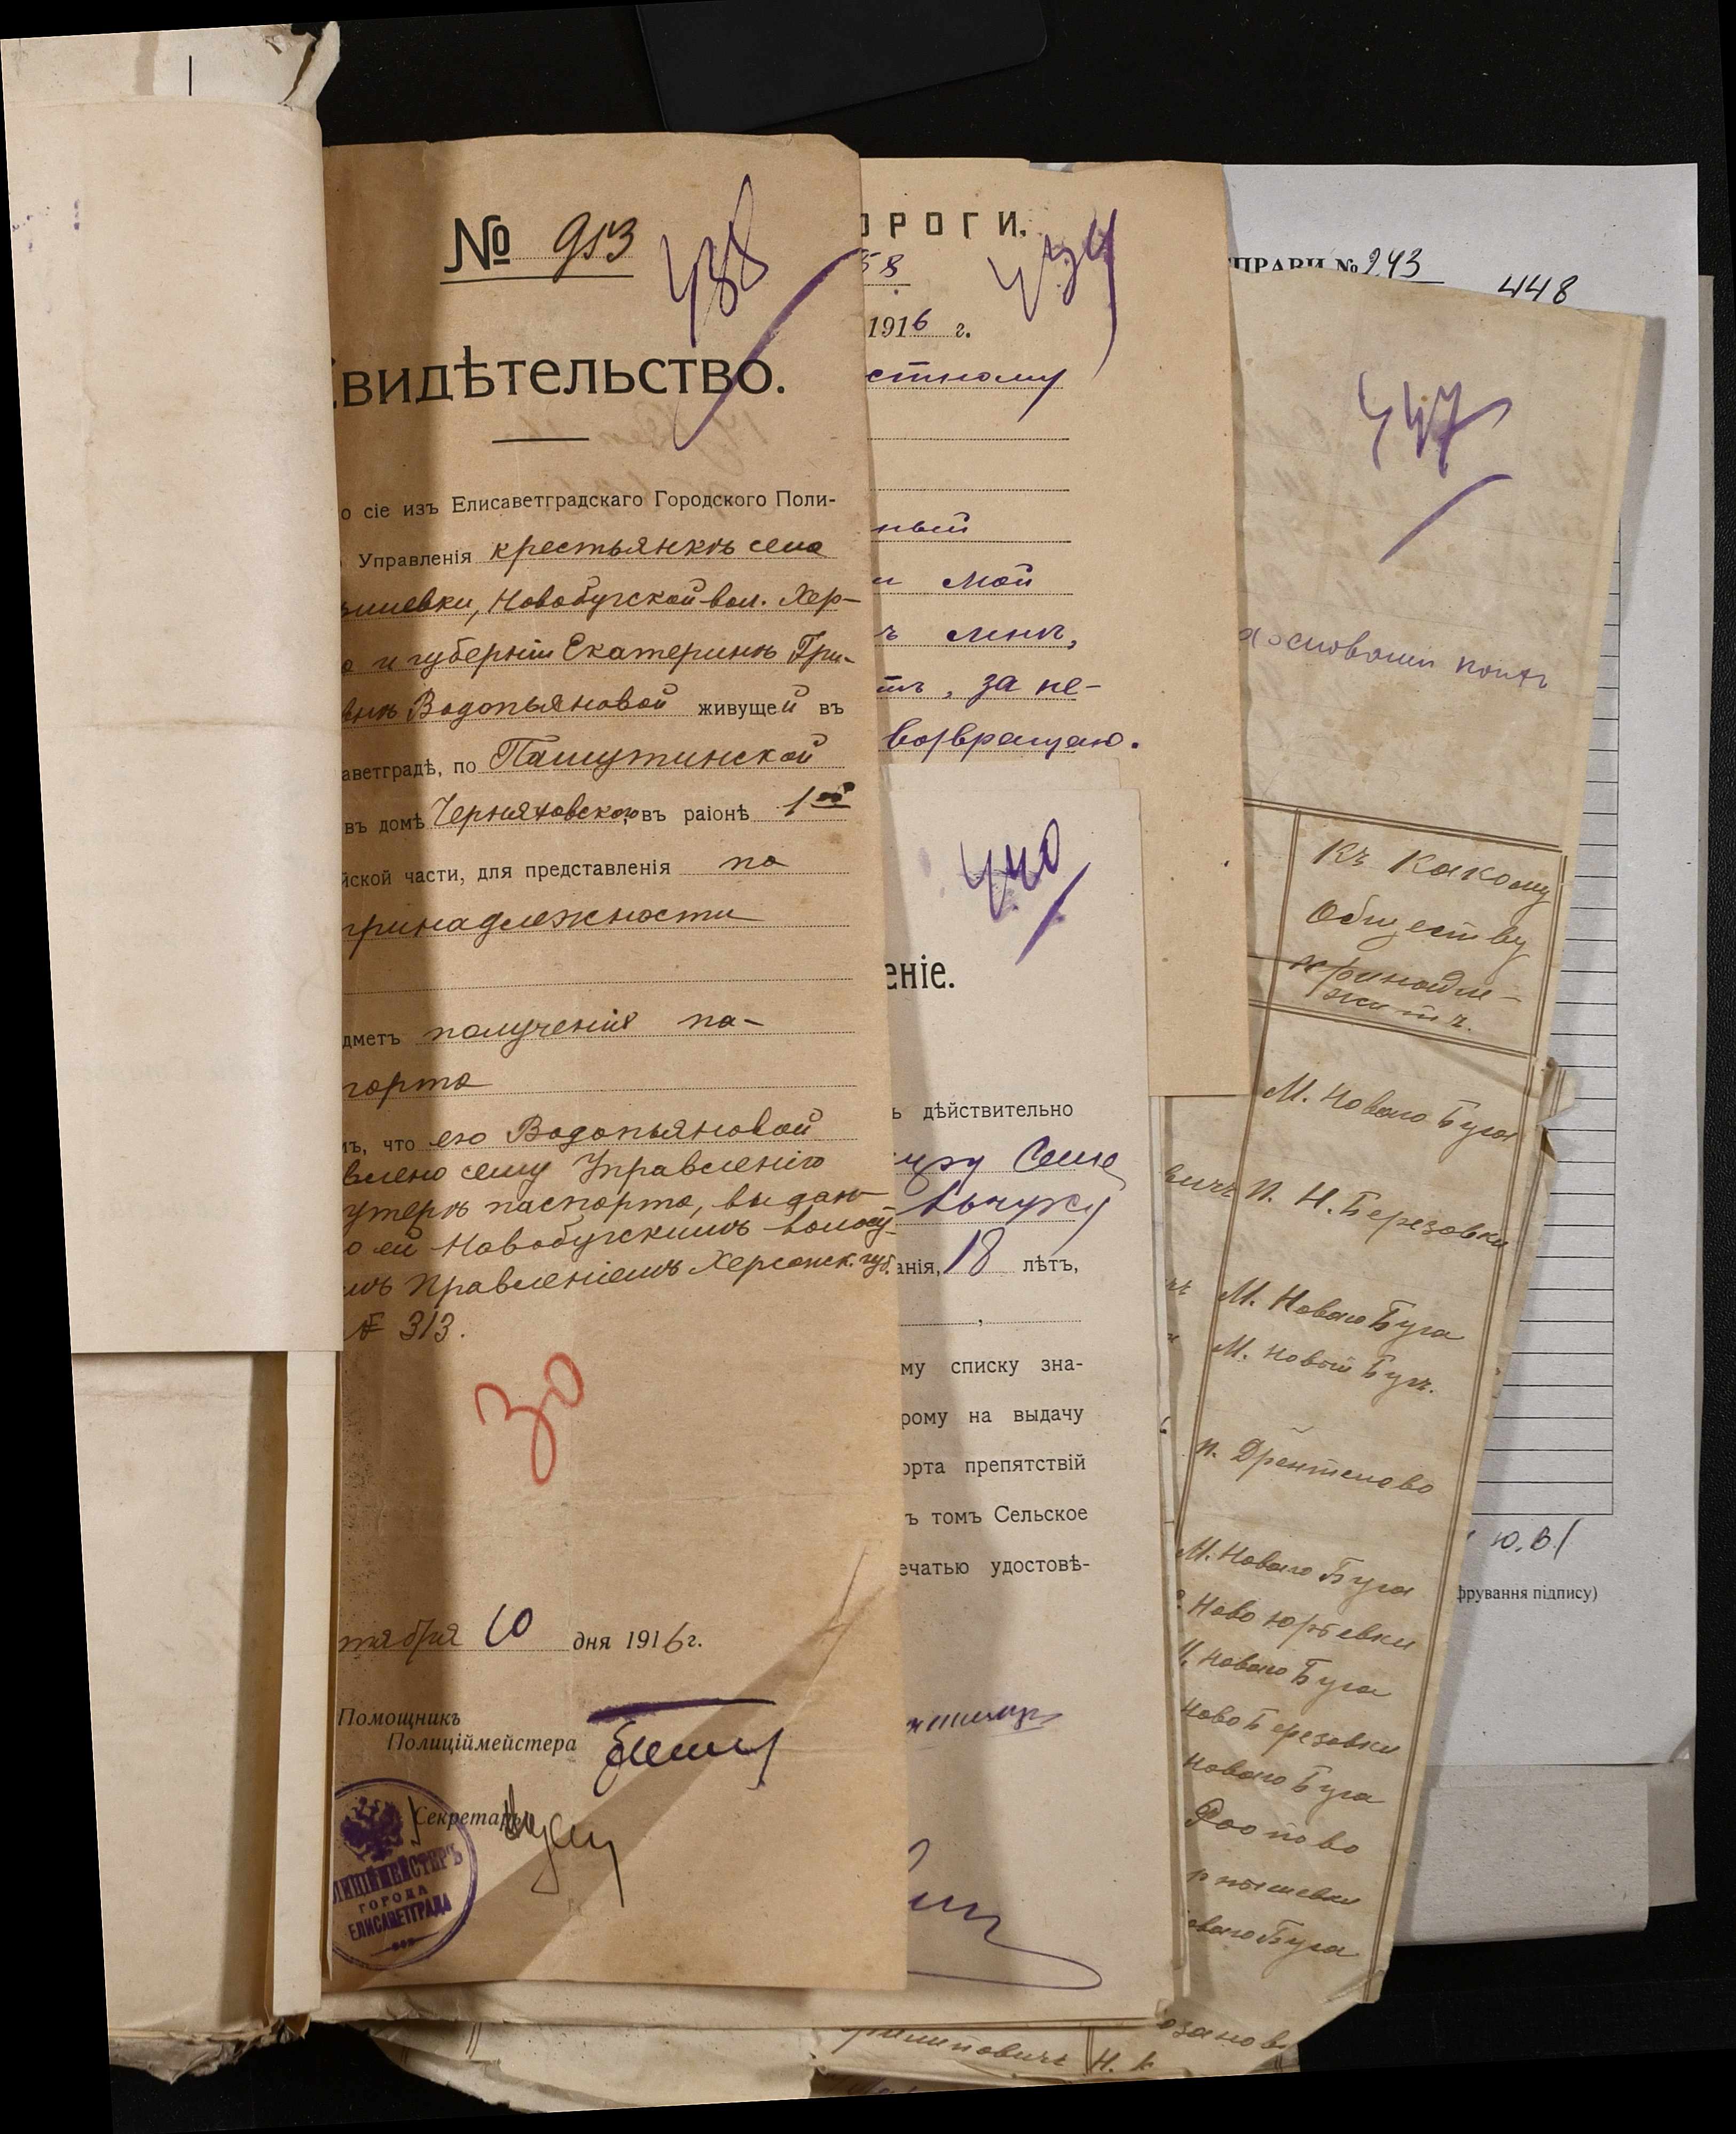 № 953
438
Свидѣтельство.
о сіе изъ Елисаветградскаго Городского Поли-
Управленія крестьянкѣ села
шевки, Новобугской вол. Хер-
о и губерніи Екатеринѣ Гри-
внѣ Водопьяновой живущей въ
аветградѣ, по Пашутинской
въ домѣ Черняховского, въ раіонѣ 1ой
йской части, для представленія по
принадлежности
дметъ полученія па-
порта
мъ, что ею Водопьяновой
влено сему Управленію
утерѣ паспорта, выдан-
о ей Новобугскимъ волост-
мъ Правленіемъ Херсонск. губ.
№ 313.
30
тября 10 дня 1916 г.
Помощникъ
Полиціймейстера
Секретарь
ЛИЦІЙМЕЙСТЕРЪ
ГОРОДА
ЕЛИСАВЕТГРАДА
ОРОГИ.
58
439
1916 г.
стному
ный
и мой
ъ мнѣ,
тъ, за не-
возвращаю.
440
еніе.
ь дѣйствительно
выпуску
анія, 18 лѣтъ,
му списку зна-
рому на выдачу
орта препятствій
ъ томъ Сельское
ечатью удостовѣ-
ПРАВИ № 243
448
447
основании
Къ какому
Обществу
принадле-
житъ.
М. Новаго Буга
вичъ п. Н. Березовки
М. Новаго Буга
М. Новый Бугъ.
п. Дрентелево
М. Новаго Буга
Ново Юрьевки
М. Новаго Буга
Ново Березовки
Новаго Буга
Роопово
оваго Буга
Ю.В./
фрування підпису)
липовичъ Н.